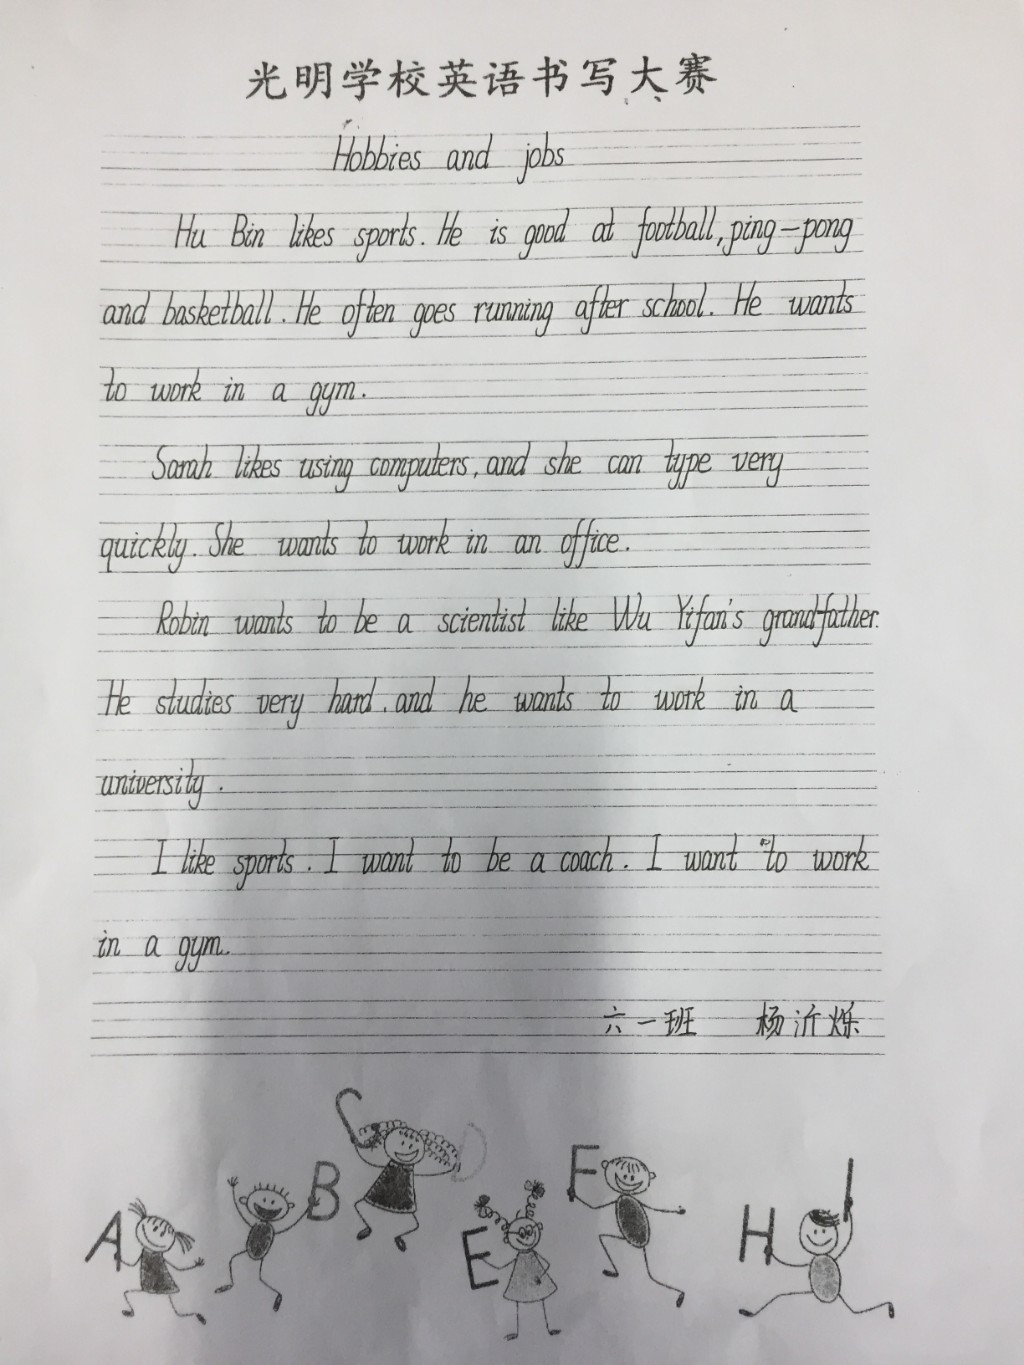 光明学校英语书写大赛
Hobbies and jobs
Hu Bin likes sports. He is good at football, ping-pong
and basketball. He often goes running after school. He wants
to work in a gym.
Sarah likes using computers, and she can type very
quickly. She wants to work in an office.
Robin wants to be a scientist like Wu Yifan's grandfather.
He studies very hard, and he wants to work in a
university.
I like sports. I want to be a coach. I want to work
in a gym.
六一班 杨沂烁
A B C D E F H I